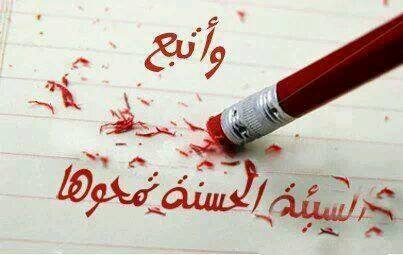 وأتبع
السيئة الحسنة تمحوها